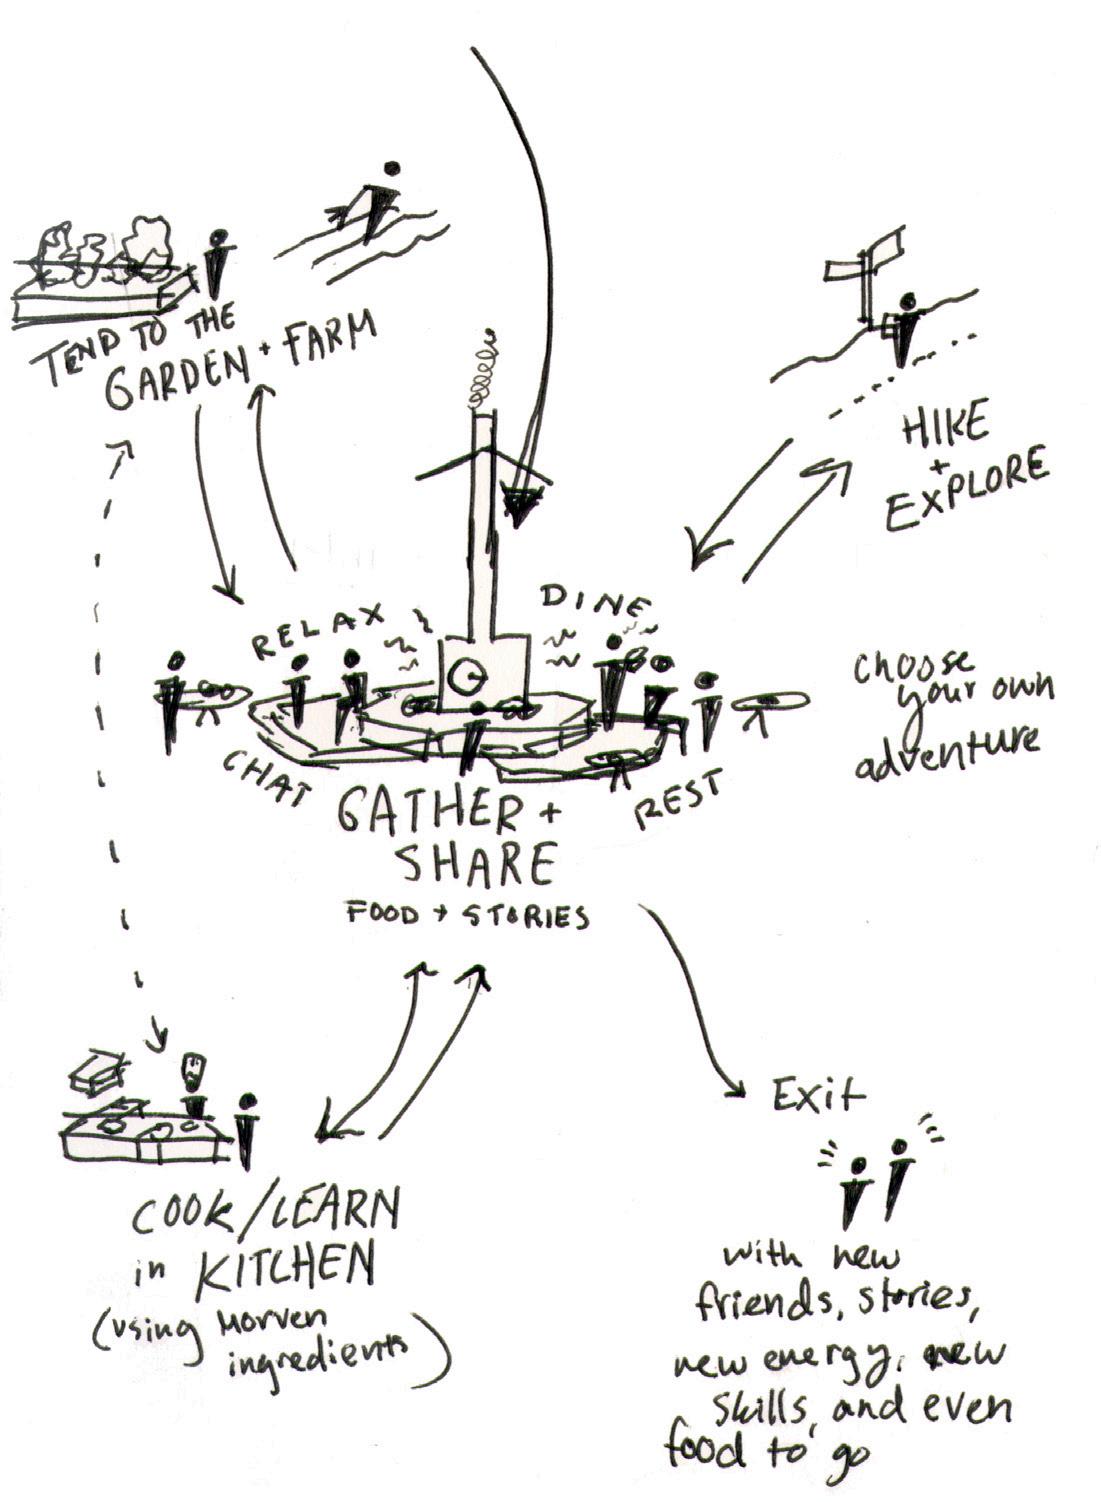 TEND TO THE
GARDEN + FARM
HIKE
+
EXPLORE
RELAX
DINE
choose
your own
adventure
CHAT
REST
GATHER +
SHARE
FOOD + STORIES
Exit
COOK/LEARN
in KITCHEN
(using Morven
ingredients)
with new
friends, stories,
new energy, new
skills, and even
food to go